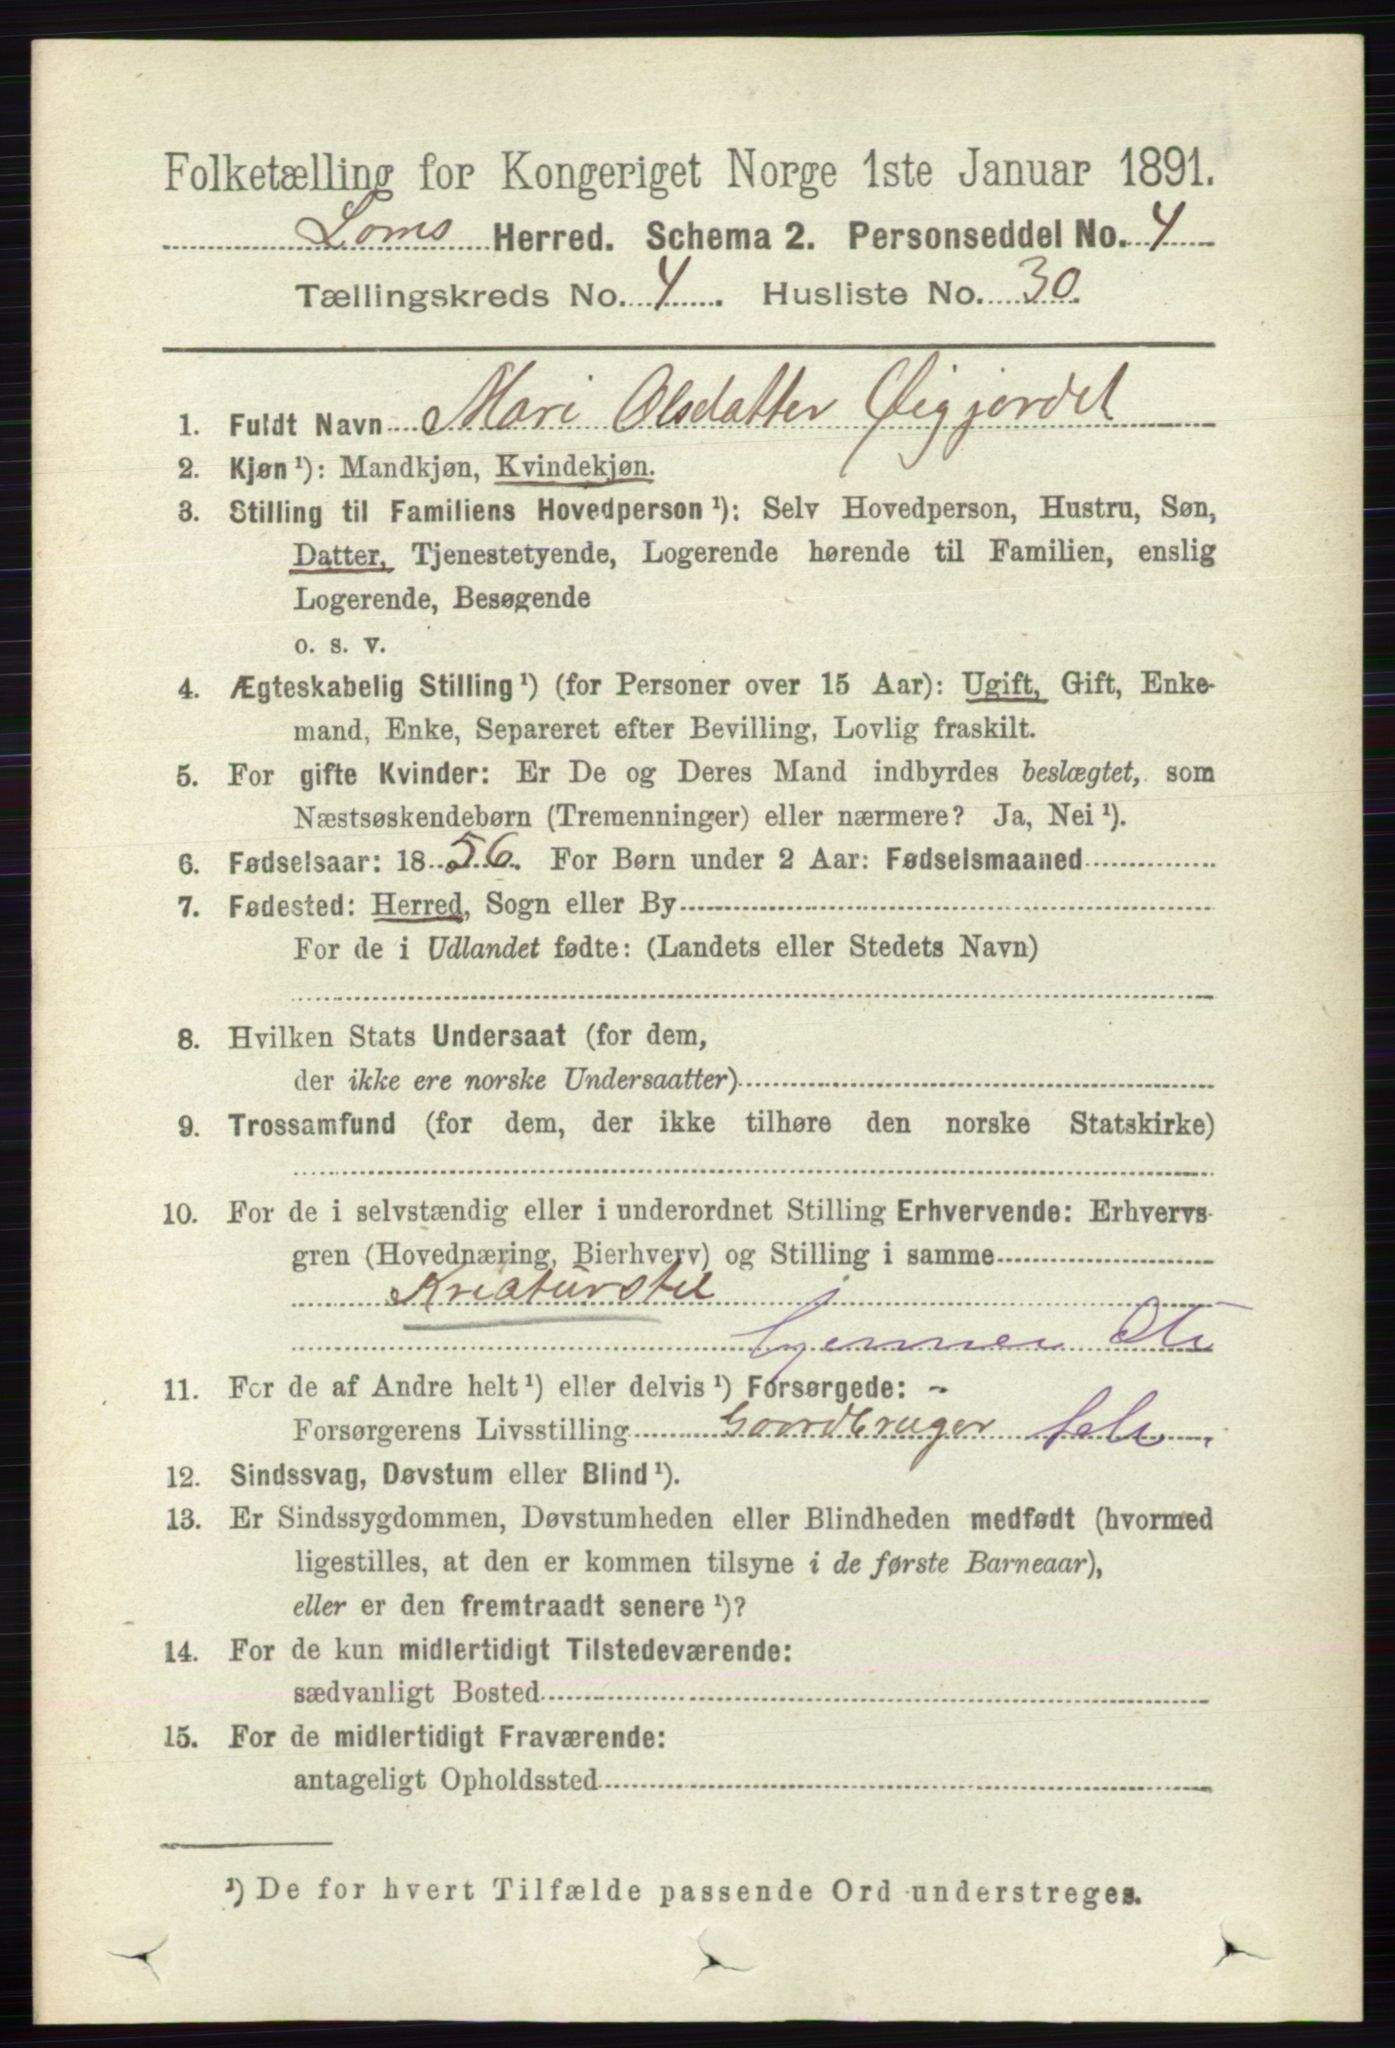 Folketælling for Kongeriget Norge 1ste Januar 1891.
Loms Herred. Schema 2. Personseddel No. 4
Tællingskreds No. 4. Husliste No. 30.
1. Fuldt Navn Mari Olsdatter Øigjordet
2. Kjøn¹): Mandkjøn, Kvindekjøn.
3. Stilling til Familiens Hovedperson¹): Selv Hovedperson, Hustru, Søn,
Datter, Tjenestetyende, Logerende hørende til Familien, enslig
Logerende, Besøgende
o. s. v.
4. Ægteskabelig Stilling¹) (for Personer over 15 Aar): Ugift, Gift, Enke-
mand, Enke, Separeret efter Bevilling, Lovlig fraskilt.
5. For gifte Kvinder: Er De og Deres Mand indbyrdes beslægtet, som
Næstsøskendebørn (Tremenninger) eller nærmere? Ja, Nei¹).
6. Fødselsaar: 1856. For Børn under 2 Aar: Fødselsmaaned
7. Fødested: Herred, Sogn eller By
For de i Udlandet fødte: (Landets eller Stedets Navn)
8. Hvilken Stats Undersaat (for dem,
der ikke ere norske Undersaatter)
9. Trossamfund (for dem, der ikke tilhøre den norske Statskirke)
10. For de i selvstændig eller i underordnet Stilling Erhvervende: Erhvervs-
gren (Hovednæring, Bierhverv) og Stilling i samme
Kriaturstel
11. For de af Andre helt¹) eller delvis¹) Forsørgede: -
Forsørgerens Livsstilling Gaardbruger
12. Sindssvag, Døvstum eller Blind¹).
13. Er Sindssygdommen, Døvstumheden eller Blindheden medfødt (hvormed
ligestilles, at den er kommen tilsyne i de første Barneaar),
eller er den fremtraadt senere¹)?
14. For de kun midlertidigt Tilstedeværende:
sædvanligt Bosted
15. For de midlertidigt Fraværende:
antageligt Opholdssted
¹) De for hvert Tilfælde passende Ord understreges.